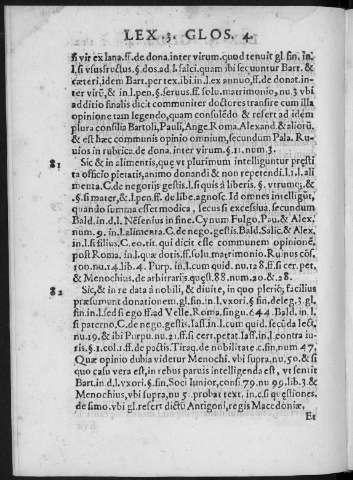 LEX .3. GLOS. 4.
si vir ex lana.ff.de dona.inter virum.quod tenuit gl.fin.in
l.si vsusfructus.§.dos.ad l.falci.quam ibi sequuntur Bart.&
cæteri, idem Bart.per tex.ibi.in l.ex annuo,ff.de donat.in-
ter virū,& in l.pen.§.seruus.ff.solu.matrimonio, nu.3 vbi
ad ditio finalis dicit communiter doctores transire cum illa
opinione tam legendo, quam consulēdo & refert ad idem
plura consilia Bartoli, Pauli, Ange. Roma, Alexand.& aliorū
& est hæc communis opinio omnium, secundum Pala. Ru-
uios in rubrica.de dona.inter virum.§.11.num.3.
81 Sic & in alimentis, que vt plurimum intelliguntur pręsti
ta officio pietatis, animo donandi & non repetendi.l.1.l.ali
menta.C.de negotijs gestis.l.si quis à liberis.§.vtrum,&
§.si mater,& l.pen.ff.de libe.agnosc. Id omnes intelligūt,
quando summa esset modica, secus si excessiua, secundum
Bald.in d.l. Nesenius in fine. Cynum Fulgo, Pau.& Alex,
num.9. in l.alimenta.C.de nego.gestis. Bald. Salic,& Alex,
in l.si filius.C.eo.tit. qui dicit esse communem opinionē,
post Roma. in l.quæ dotis.ff.solu.matrimonio. Ruinos cōs,
100.nu.14.lib.4. Purp. in l.cum quid. nu.128.ff.si cer.pet,
& Menochius, de arbitrarijs.quęst.88.num.20.& 28.
82 Sic,& in re data à nobili, & diuite, in quo plerūq; facilius
præsumunt donationem, gl.fin.in l.vxori.§.fin.deleg.3.gl.
fin.in l.sed si ego ff.ad Velle. Roma, singu.644. Bald. in l.
si paterno.C.de nego.gestis. Iass.in l.cum quid. secūda lect,
nu.19,& ibi Purpu.nu.21.ff.si cer.petat. Iass.in l.contra iu-
ris.§.1.col.1.ff.de pactis. Tiraq. de nobilitate c.fin.num 47,
Quæ opinio dubia videtur Menochi. vbi supra, nu.50.& si
quo casu vera est, in rebus paruis intelligenda est, vt sentit
Bart.in d.l.vxori.§.fin. Soci Iunior, consi.79.nu 99.lib.3.&
Menochius, vbi supra, nu 5. probat text. in c.si quęstiones,
de simo. vbi gl. refert dictū Antigoni, regis Macedoniæ.
Et